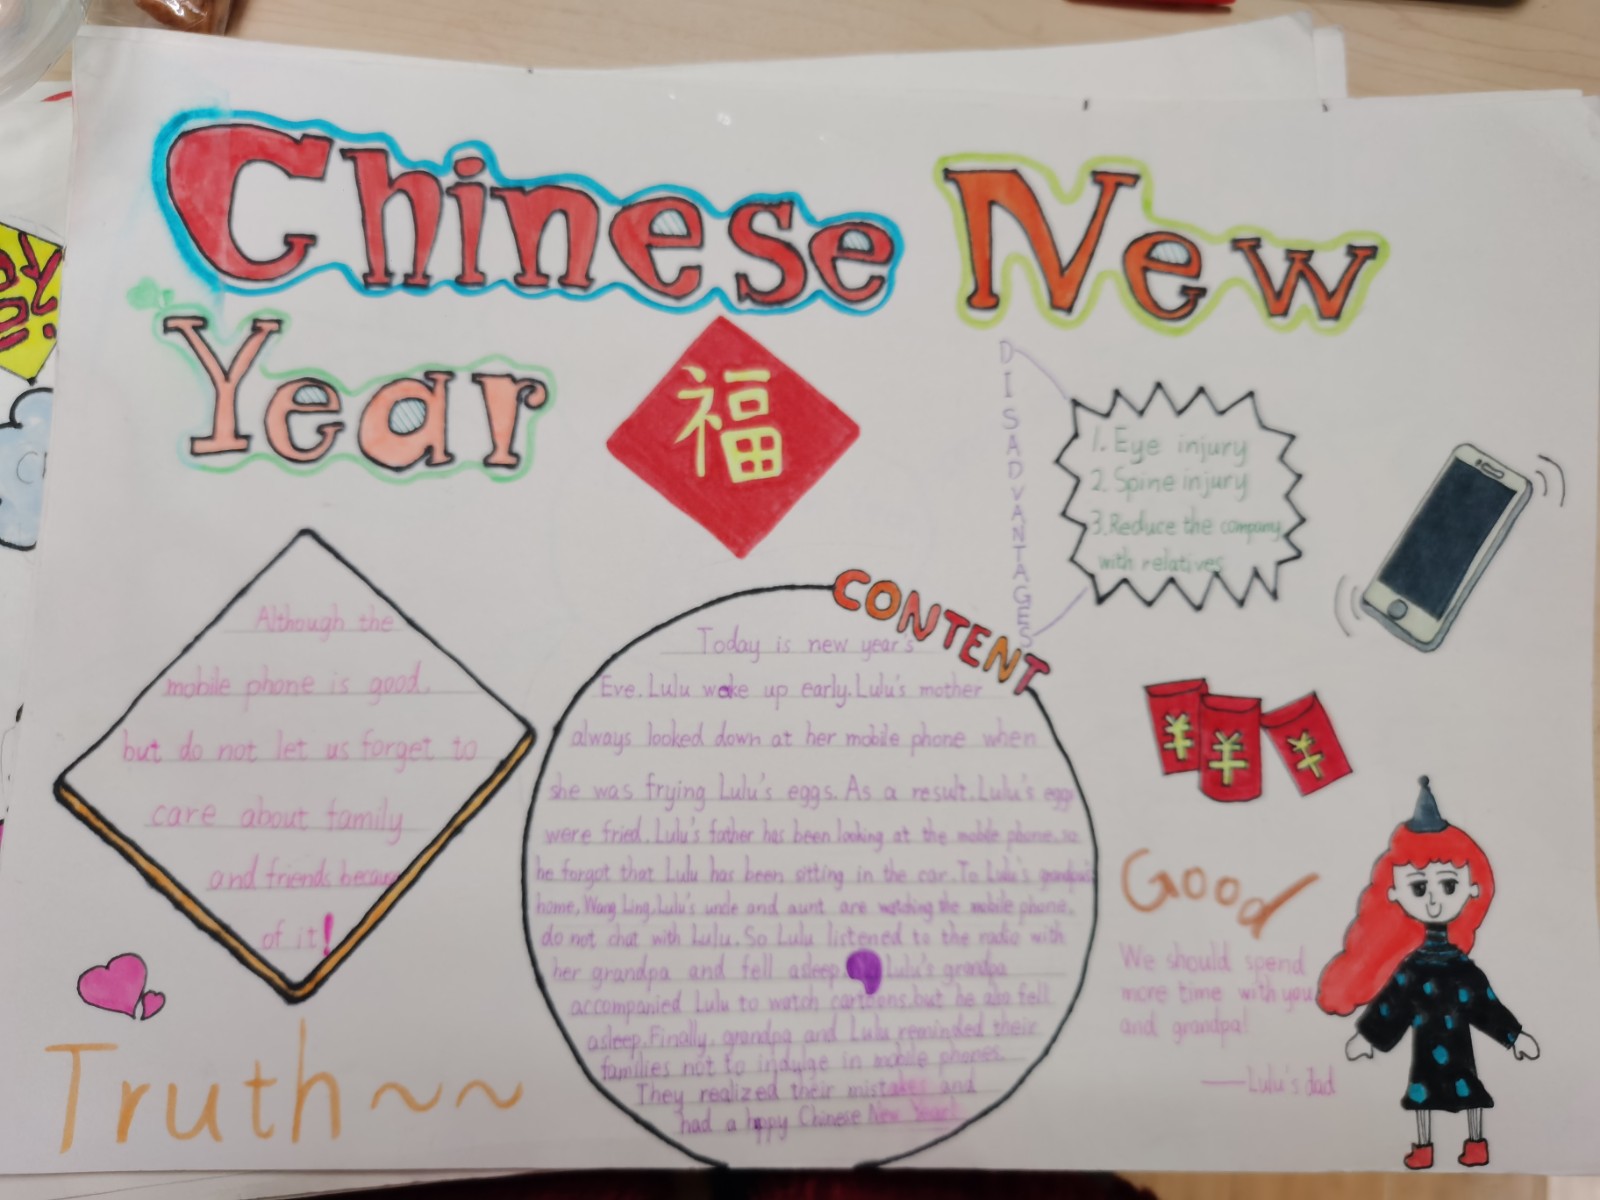 Chinese New
Year
福
DISADVANTAGES
1. Eye injury
2. Spine injury
3. Reduce the company
with relatives
Although the
mobile phone is good,
but do not let us forget to
care about family
and friends because
of it!
Truth~~
CONTENT
Today is new year's
Eve. Lulu woke up early. Lulu's mother
always looked down at her mobile phone when
she was frying Lulu's eggs. As a result, Lulu's eggs
were fried. Lulu's father has been looking at the mobile phone, so
he forgot that Lulu has been sitting in the car. To Lulu's grandpa's
home, Wang Ling, Lulu's uncle and aunt are watching the mobile phone,
do not chat with Lulu. So Lulu listened to the radio with
her grandpa and fell asleep. Lulu's grandpa
accompanied Lulu to watch cartoons, but he also fell
asleep. Finally, grandpa and Lulu reminded their
families not to indulge in mobile phones.
They realized their mistakes and
had a hppy Chinese New Year!
¥
¥
¥
Good
We should spend
more time with you
and grandpa!
——Lulu's dad